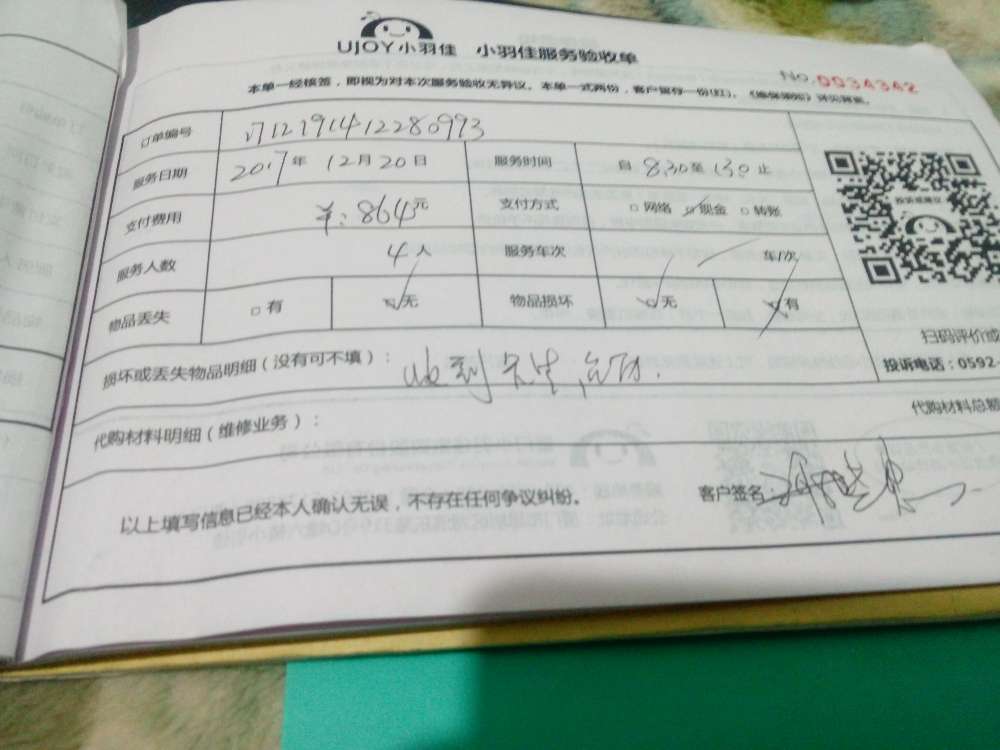 UJOY小羽佳 小羽佳服务验收单
No.0034342
本单一经核签，即视为对本次服务验收无异议。本单一式两份，客户留存一份(红)。
订单编号 1712191412280993
服务日期 2017年 12月20日 服务时间 自 8:30 至 130 止
投诉或建议
支付费用 ¥:864元 支付方式 □网络 ☑现金 □转账
服务人数 4人 服务车次 车/次
物品丢失 □有 ☑无 物品损坏 ☑无 有
扫码评价或
损坏或丢失物品明细（没有可不填）： 收到
投诉电话：0592-
代购材料明细（维修业务）：
代购材料总额
以上填写信息已经本人确认无误，不存在任何争议纠纷。
客户签名：